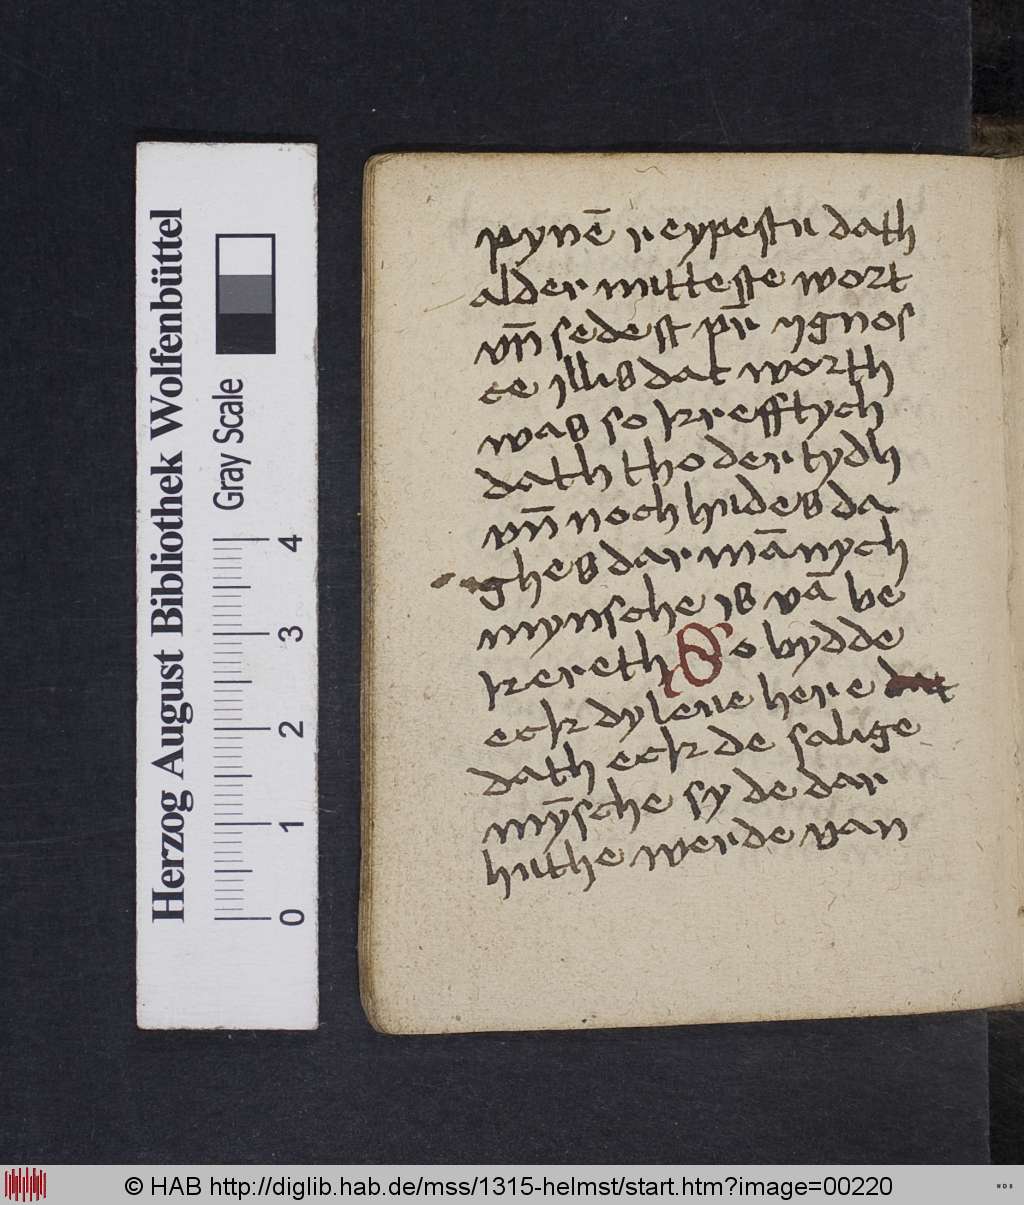 pynē reypestu dath
alder mitteste wort
vn̄ sedest pr̄ ygnos
ce illis dat worth
was so krefftych
dath tho der tydh
vn̄ noch hudes da
ghes dar mānych
mynsche is vā be
kereth So bydde
eck dy leue here dat
dath eck de salige
mȳsche sy de dar
huthe werde van
Herzog August Bibliothek Wolfenbüttel
Gray Scale
0 1 2 3 4
© HAB http://diglib.hab.de/mss/1315-helmst/start.htm?image=00220